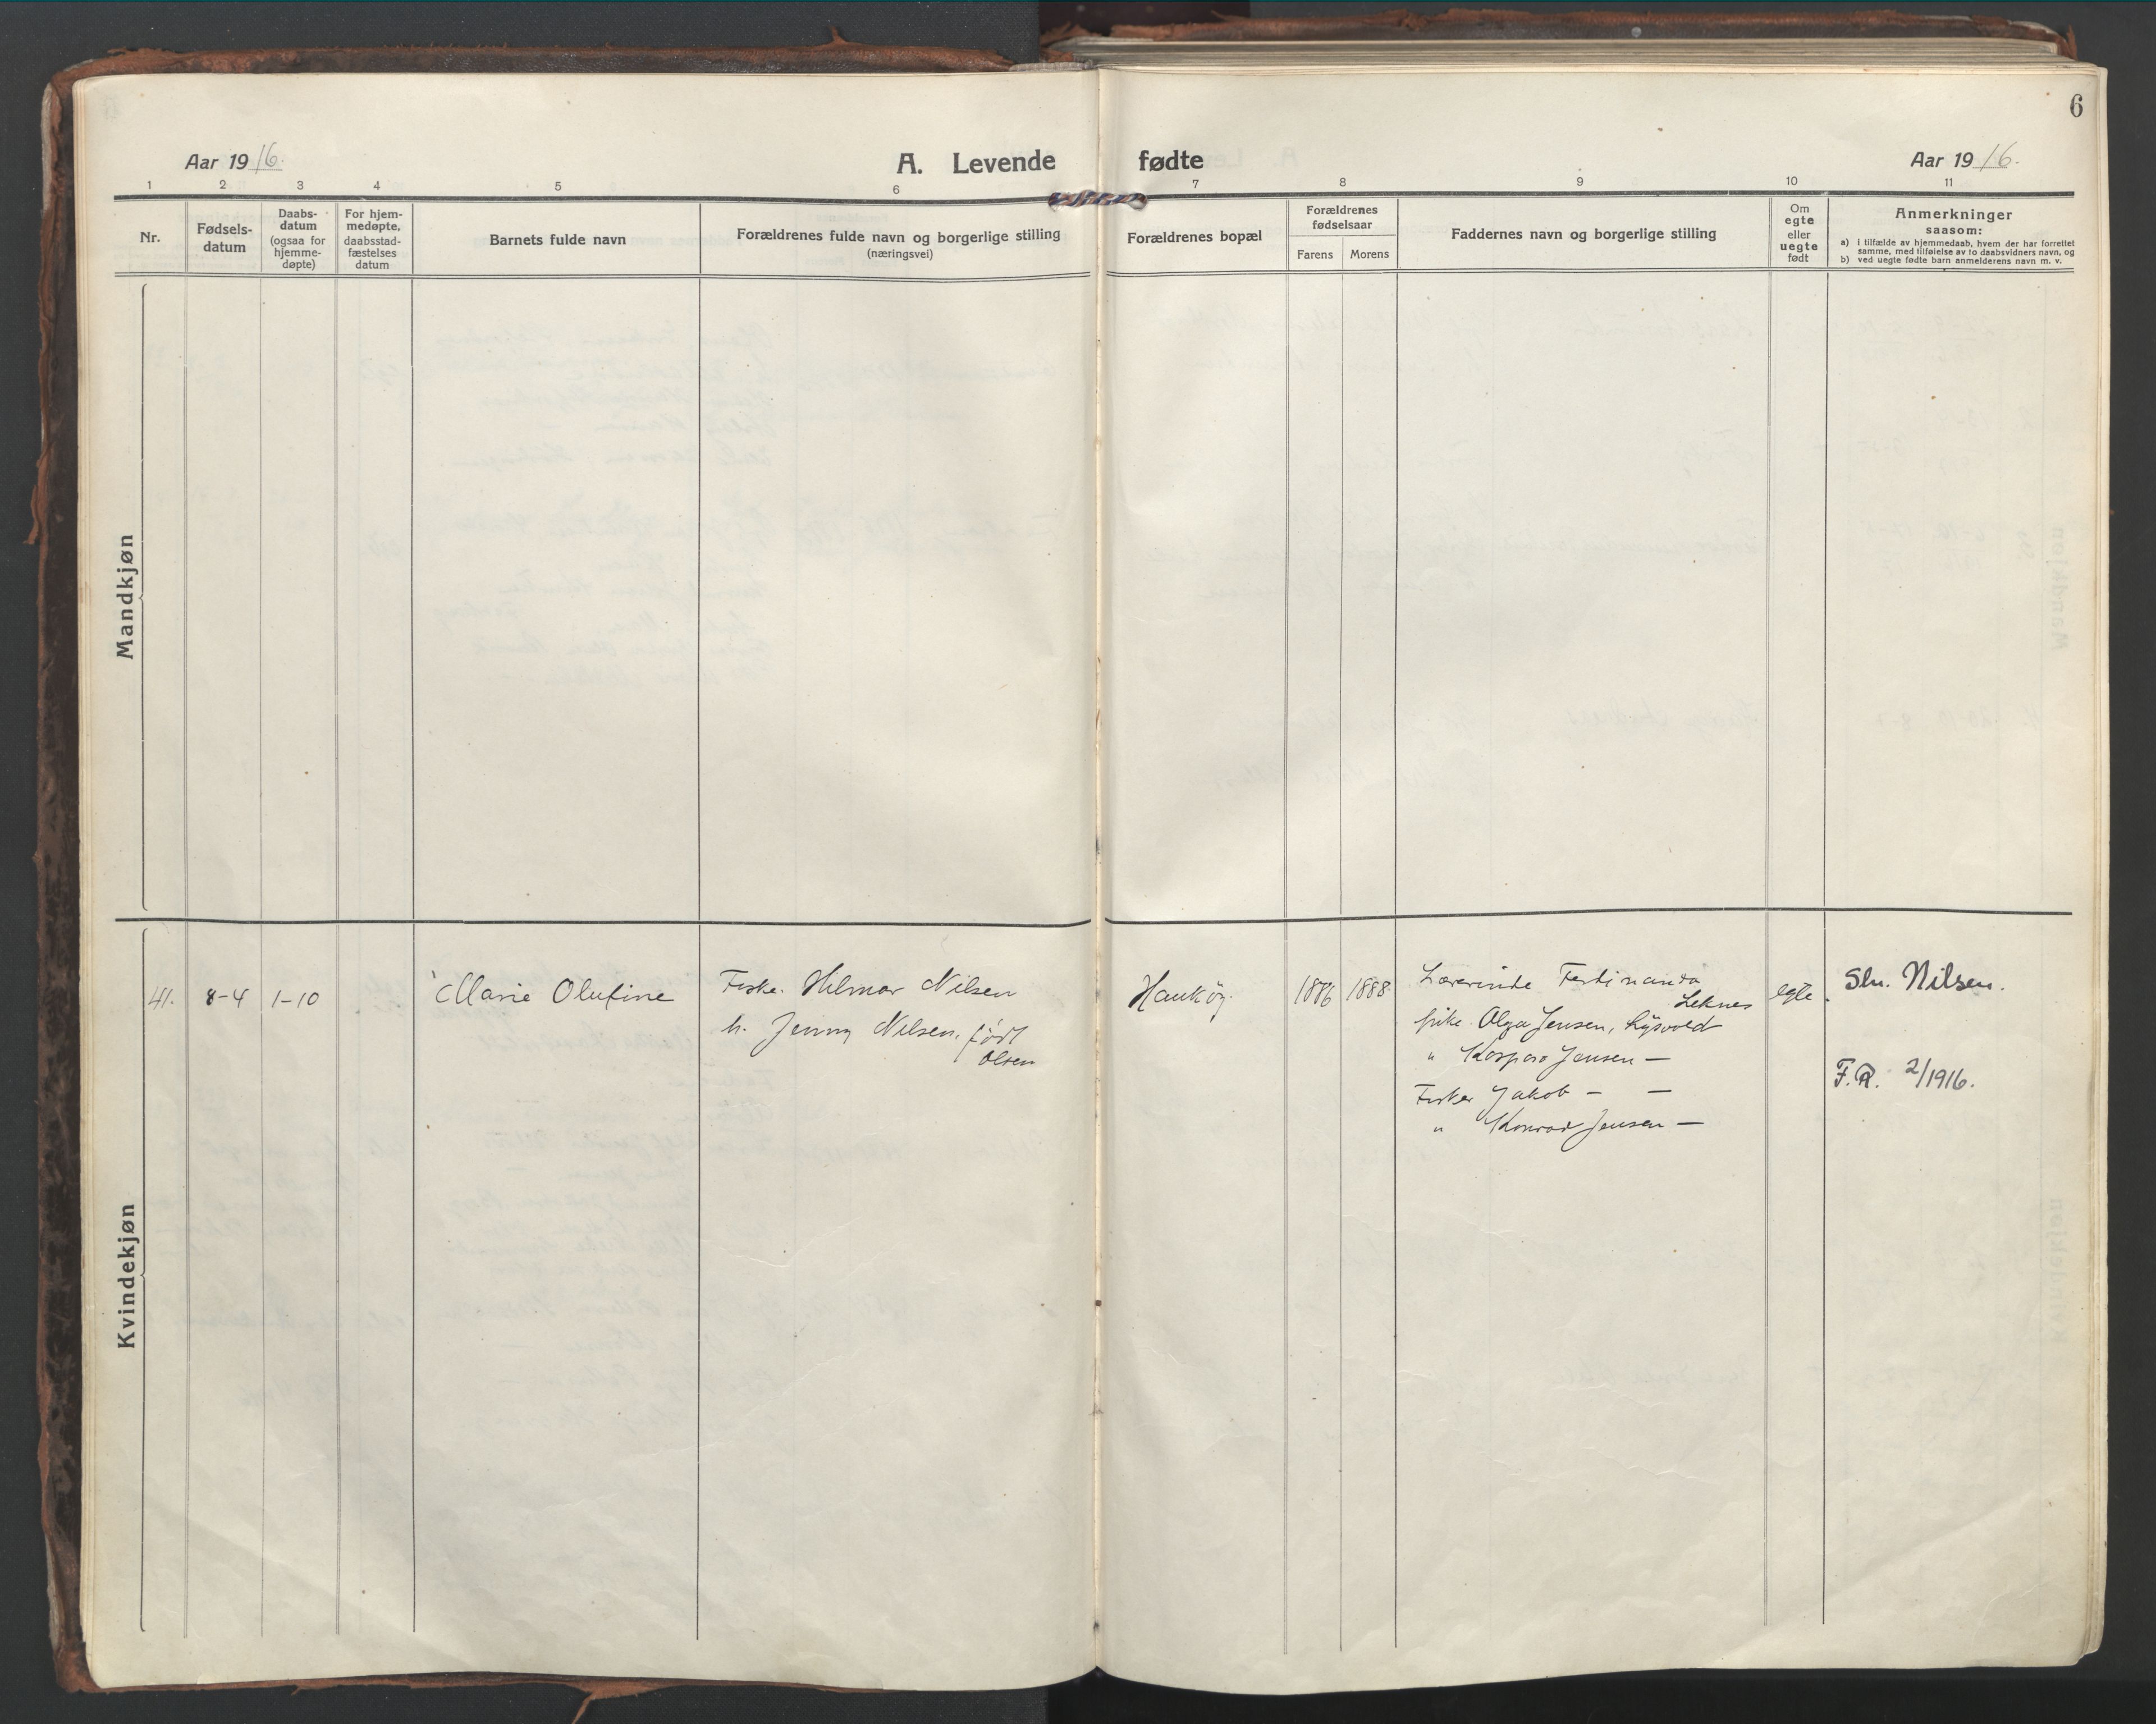 6
Aar 1916.
A. Levende fødte
Aar 1916.
1 2 3 4 5 6 7 8 9 10 11
Nr.
Fødsels-
datum
Daabs-
datum
(ogsaa for
hjemme-
døpte)
For hjem-
medøpte,
daabsstad-
fæstelses
datum
Barnets fulde navn
Forældrenes fulde navn og borgerlige stilling
(næringsvei)
Forældrenes bopæl
Forældrenes
fødselsaar
Farens Morens
Faddernes navn og borgerlige stilling
Om
egte
eller
uegte
født
Anmerkninger
saasom:
a) i tilfælde av hjemmedaab, hvem der har forrettet
samme, med tilføielse av to daabsvidners navn, og
b) ved uegte fødte barn anmelderens navn m. v.
Mandkjøn
Kvindekjøn
41. 8-4 1-10
Marie Olufine
Fisker Hilmar Nilsen
h. Jenny Nilsen, født
Olsen
Haukøy
1886 1888
Lærerinde Ferdinanda
Leknes
pike Olga Jensen, Lysvold
" Kaspara Jensen —
Fisker Jakob - —
" Konrad Jensen —
egte
Sln. Nilsen.
F.R. 2/1916.